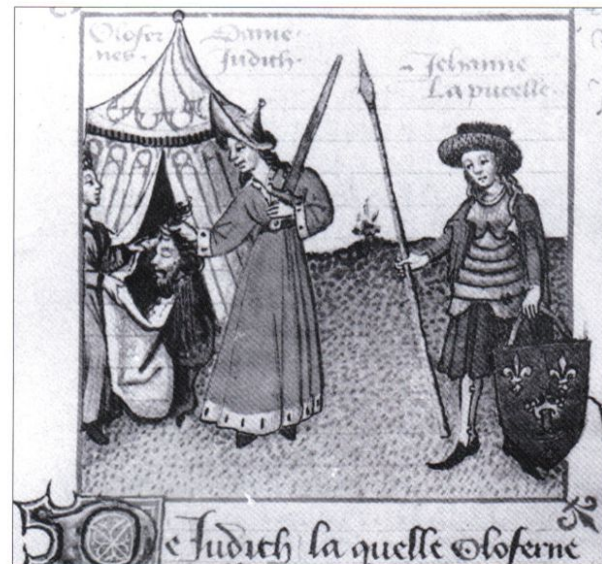 Olofer
nes.
Dame
Judith.
Jehanne
La pucelle.
De Judith la quelle Oloferne